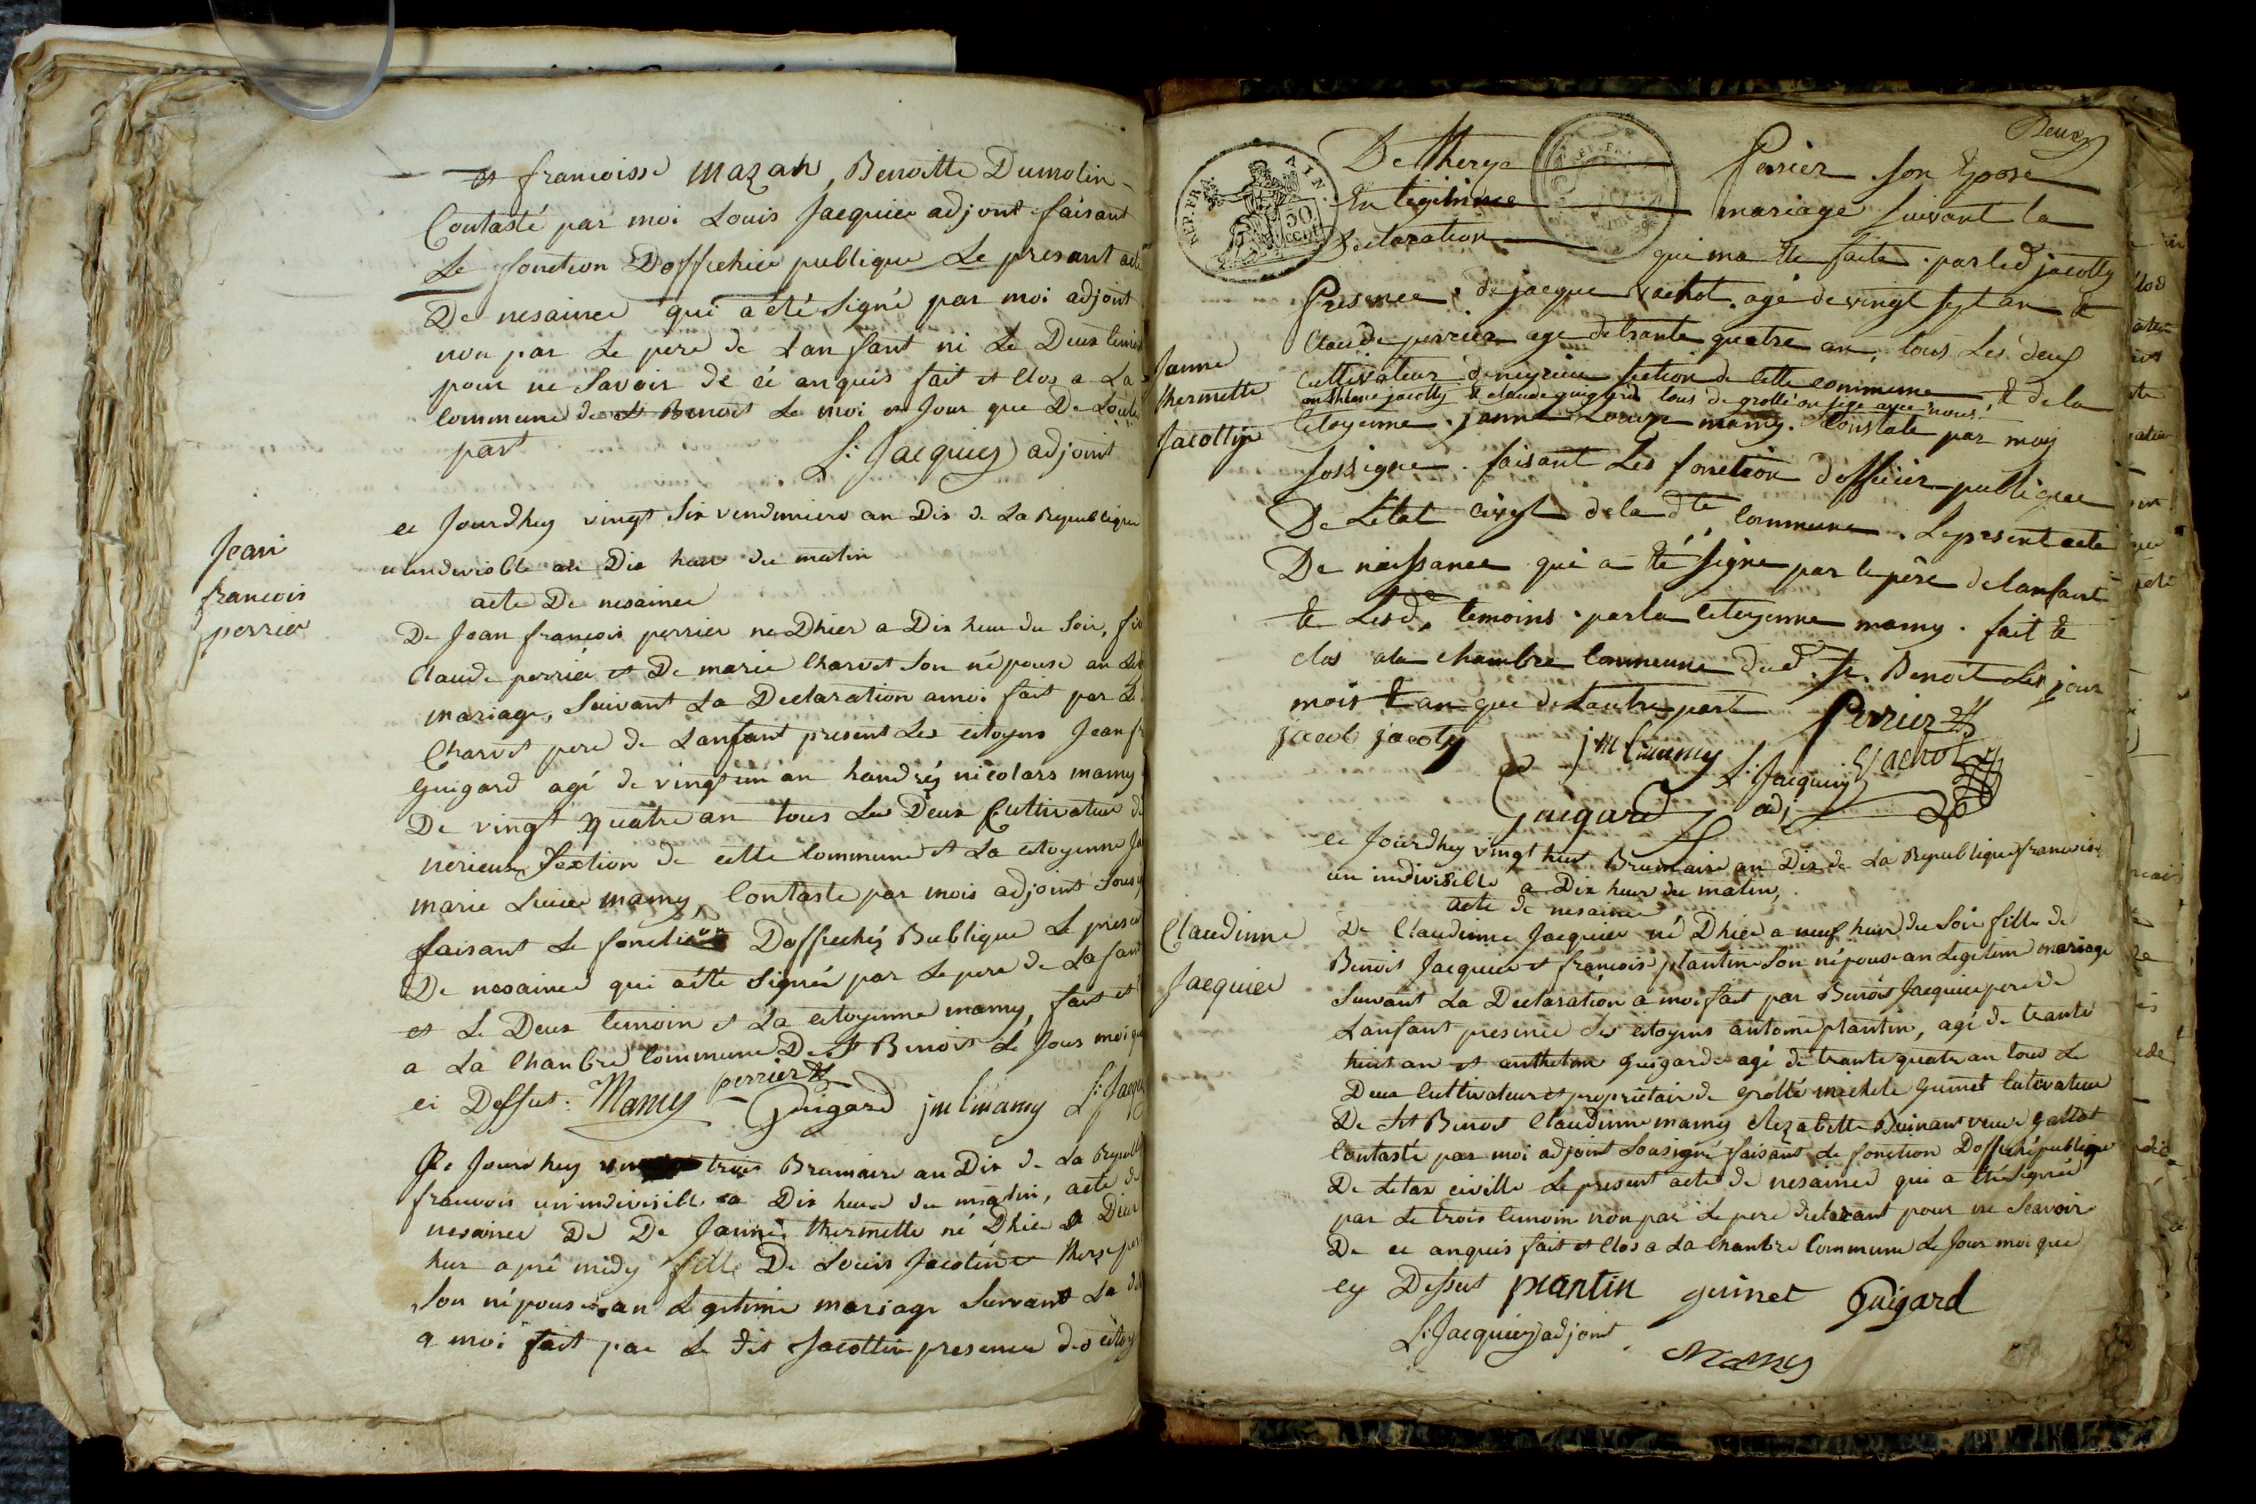 et francoisse Mazah, Benoitte Dumolin
Contasté par moi Louis Jacquier adjont faisant
Le fonction Doffichier publique Le presant acte
De nesaince qui a été Signé par moi adjont
non par Le pere de Lanfant ni Le Deux temin
pour ne Savoir de ce anquis fait et Clos a La
Commune de St Benoit Le moi et Jour que De Loutre
part
L. Jacquier adjoint
Jean
francois
perrier
ce Jourdhuy vingt Six vendemiere an Dix de La Republique
unindivisible au Dix heur du matin
acte De nesaince
De Jean francois perrier ne Dhier a Dix heur du Soir, fils
Claude perrier et De marie Charvet Son népouse an Le
mariage, Suivant La Declaration amoi fait par Le
Charvet pere de Lanfant present Les citoyens Jean fr
Guigard agé de vingt un an handréz nicolars mamy
De vingt quatre an tous Les Deux Cultivateur de
nerieux Section de cette Commune et La citoyenne Ja
marie Luise mamy, Contaste par mois adjoint Sous
faisant Le fonction Doffichéz Bublique Le presen
De nesaince qui a été Signée par Le pere de Lafant
et Le Deux temoin et La citoyenne mamy, fait et
a La Chanbre Commune De St Benoit Le Jour moi que
ci Dessus. Mamy perrier Guigard jmlmamy L. Jacqu
Ce Jourdhuy trois Brumaire au Dix de La Republi
francois unindivisible a Dix heur du matin, acte de
nesaince De De Janne thermette né Dhier a Deux
heur apré midy fille De Louis Jacotin et therse per
Son népouse an Legitime mariage Suivant La de
a moi fait par Le dit Jacottin presence des citoy
Deux
REP. FRA. AIN.
50
CENT.
De therge Perier Son Epose
En legitime mariage Suivant la
declaration qui ma été faite par led jacotty
Presence de jacque Vachot agé de vingt sept an et
Claude perrier age de trante quatre an, tous Les deux
Cultivateur de neyrieu Section de cette commune et de la
anthleme jacotty et claude guigard tous de grolté ou sege avec nous
Janne
thermette
Jacottin
Citoyenne janne Louise mamy. Constate par moy
Sossigne faisant Les fonction dofficier publique
De Létat civyl de la dte commune. Le present acte
De naissance qui a été signe par le père de lanfant
et Lesd. temoins par la citoyenne mamy. fait et
clos ala chambre commune dud. St. Benoit Les jour
mois et an que de Lautre part
Perrier
jacob jacoty jmlmamy L. Jacquier Vachot
Guigard adj
ce Jourdhuy vingt huit Brumaire an Dix de La Republique francoise
un indivisible a Dix heur du matin,
acte de nesaince
Claudinne
Jacquier
De Claudinne Jacquier né Dhier a neuf heur du Soir fille de
Benoit Jacquier et francoise plantin Son népouse an Legetime mariage
Suivant La Declaration a moi fait par Benoit Jacquier pere de
Lanfant presence des citoyens antoine plantin, agé de trante
huit an et antheleme Guigard agé de trante quatre an tous Le
Deux Cultivateur et proprietair de Grolté michele Guinet Cultivateur
De St Benoit Claudinne mamy Elizabette Buinant veuve Gallot
Contasté par moi adjoint Sousigné faisant Le fonction Dofficié publique
De Letax civille Le present acte de nesaince qui a été Signée
par Le trois temoin non par Le pere declarant pour ne Scavoir
De ce anquis fait et Clos a La Chanbre Commune Le Jour moi que
cy Dessus plantin guinet Guigard
L. Jacquier adjoint Mamy